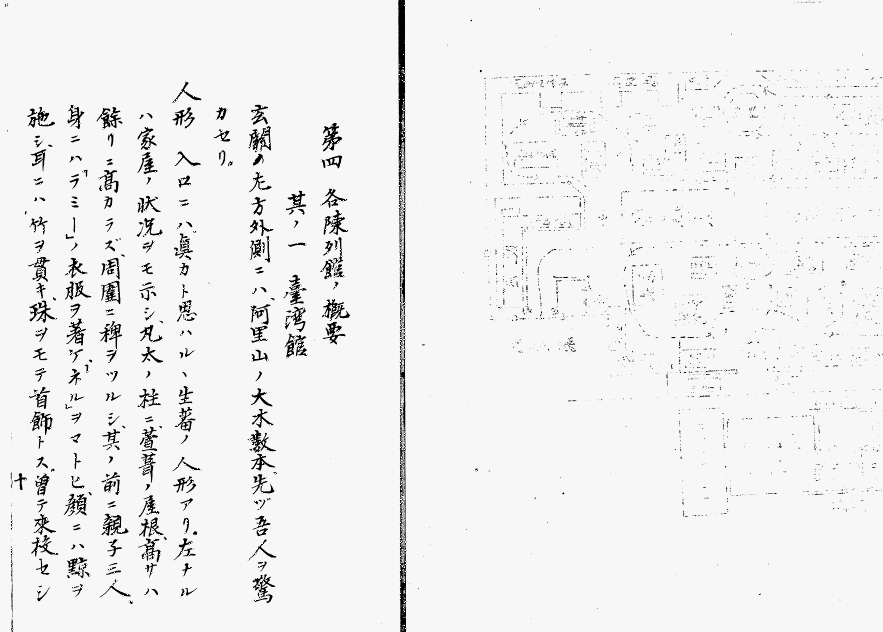 第四 各陳列館ノ概要
其ノ一 臺湾館
玄關ノ左方外側ニハ阿里山ノ大木數本先ヅ吾人ヲ驚
カセリ。
人形 入口ニハ真カト思ハルヽ生蕃ノ人形アリ。左ナル
ハ家屋ノ状況ヲモ示シ丸太ノ柱ニ萱葺ノ屋根高サハ
餘リニ高カラズ周圍ニ稗ヲツルシ其ノ前ニ親子三人
身ニハ「ラミー」ノ衣服ヲ著ケ「ネル」ヲマトヒ顔ニハ黥ヲ
施シ耳ニハ竹ヲ貫キ珠ヲモテ首飾トス。曽テ來校セシ
十